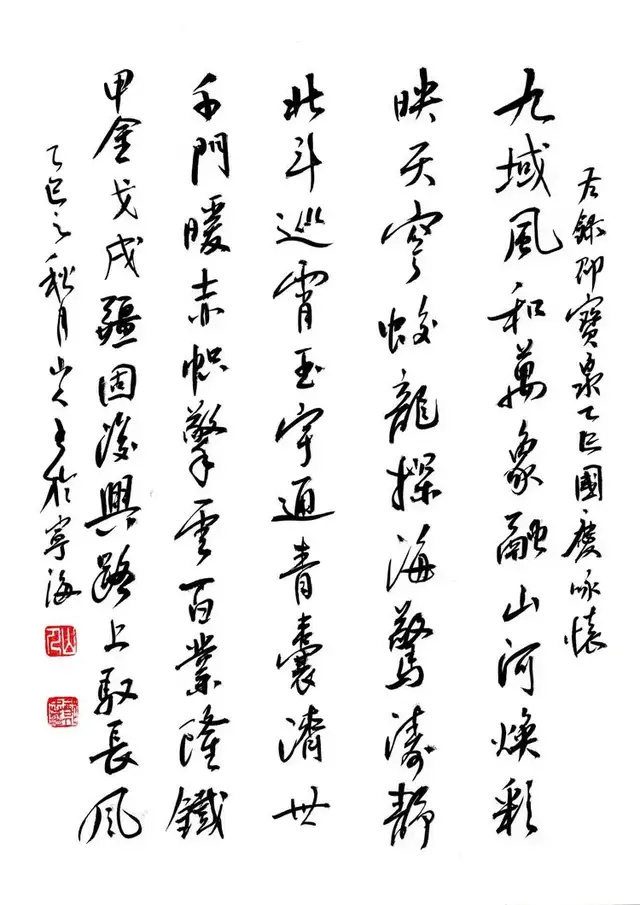 録邵寶泉乙巳國慶詠懷
九域風和萬象融山河煥彩
映天穹蛟龍探海驚濤靜
北斗巡霄玉宇通青囊濟世
千門暖赤幟擎雲百業隆鐵
甲金戈戍疆固復興路上馭長風
乙巳之秋月山人書於寧海